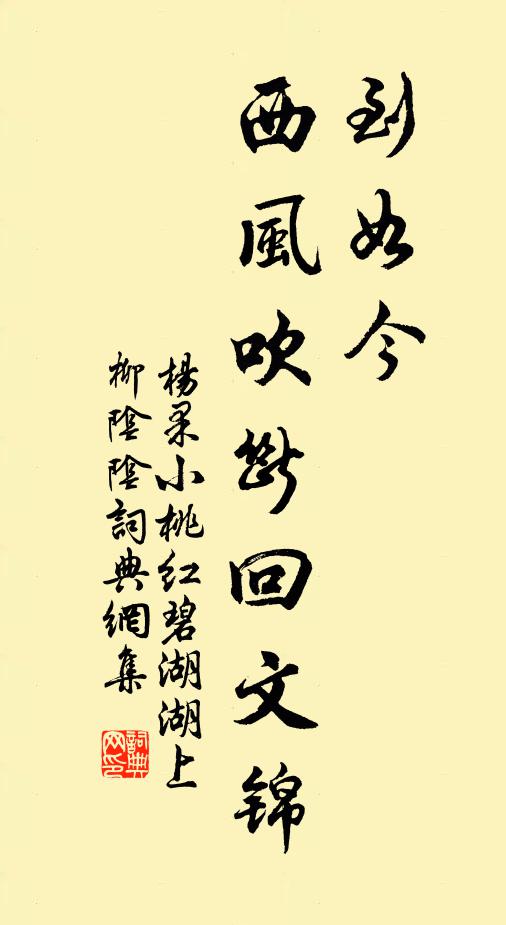 到如今
西風吹斷回文錦
楊果小桃紅碧湖湖上
柳陰陰詞典網集
詞典网印